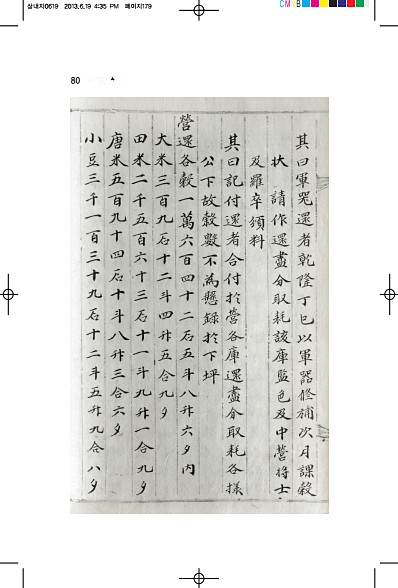 삼내지0619 2013.6.19 4:35 PM 페이지179
CMYB
80
其曰軍器還者乾隆丁巳以軍器修補次月課穀
狀請作還盡分取耗該庫監色及中營将士
及羅卒頒料
其曰記付還者合付於營各庫還盡分取耗各樣
公下故穀數不為懸錄於下坪
營還各穀一萬六百四十二石五斗八升六夕內
大米三百九石十二斗四升五合九夕
田米二千五百六十三石十一斗九升一合九夕
唐米五百九十四石十斗八升三合六夕
小豆三千一百三十九石十二斗五升九合八夕